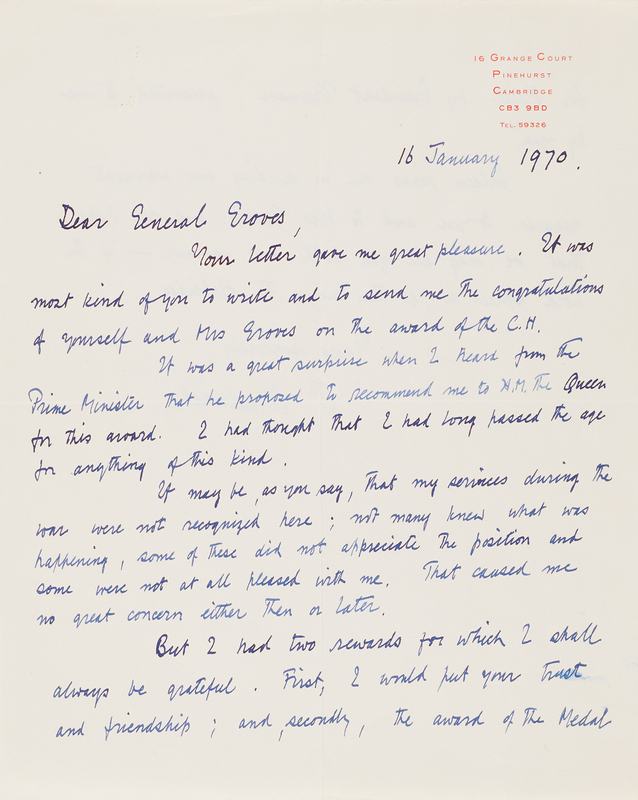 16 GRANGE COURT
PINEHURST
CAMBRIDGE
CB3 9BD
TEL. 59326
16 January 1970.
Dear General Groves,
Your letter gave me great pleasure. It was
most kind of you to write and to send me the congratulations
of yourself and Mrs Groves on the award of the C.H.
It was a great surprise when I heard from the
Prime Minister that he proposed to recommend me to H.M. the Queen
for this award. I had thought that I had long passed the age
for anything of this kind.
It may be, as you say, that my services during the
war were not recognized here; not many knew what was
happening, some of these did not appreciate the position and
some were not at all pleased with me. That caused me
no great concern either then or later.
But I had two rewards for which I shall
always be grateful. First, I would put your trust
and friendship; and, secondly, the award of the Medal